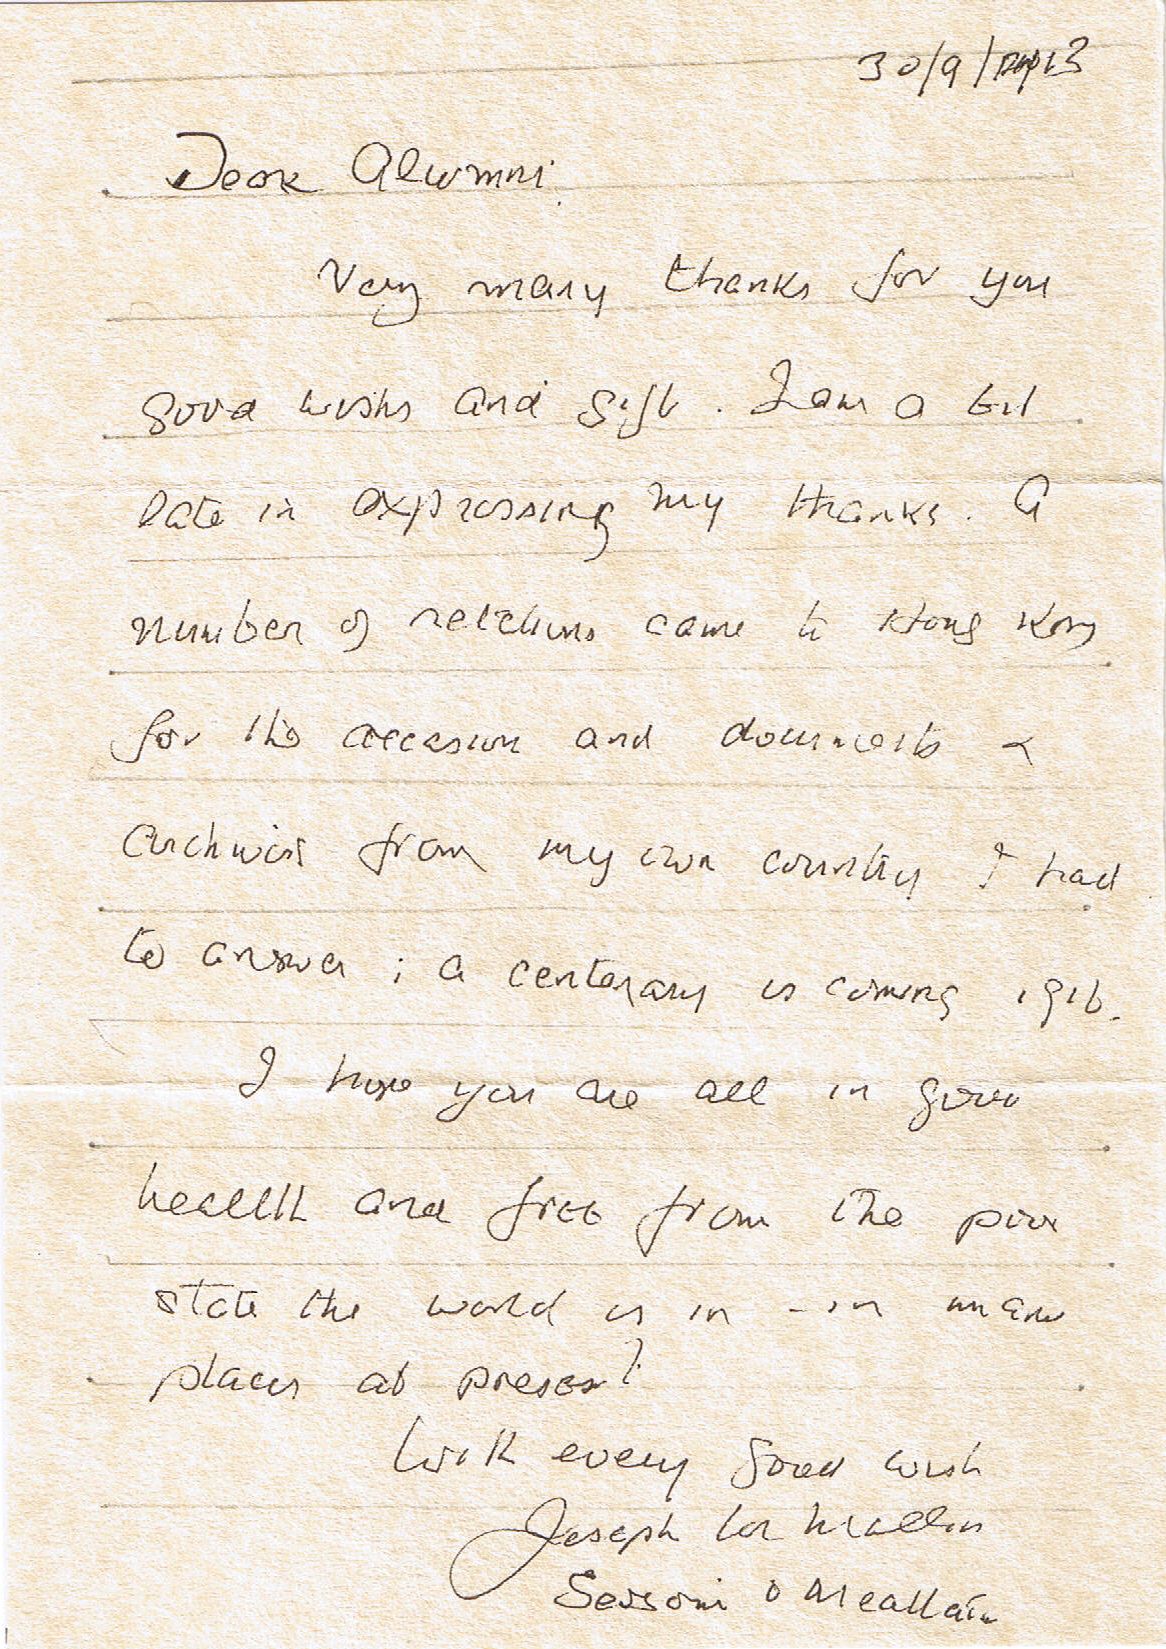 30/9/2013
Dear Alumni
Very many thanks for you
good wishes and gift. I am a bit
late in expressing my thanks. A
number of relations came to Hong Kong
for the occasion and documents &
archives from my own country I had
to answer ; a centenary is coming 1916.
I hope you are all in good
health and free from the poor
state the world is in - in many
places at present!
With every good wish
Joseph Mallin